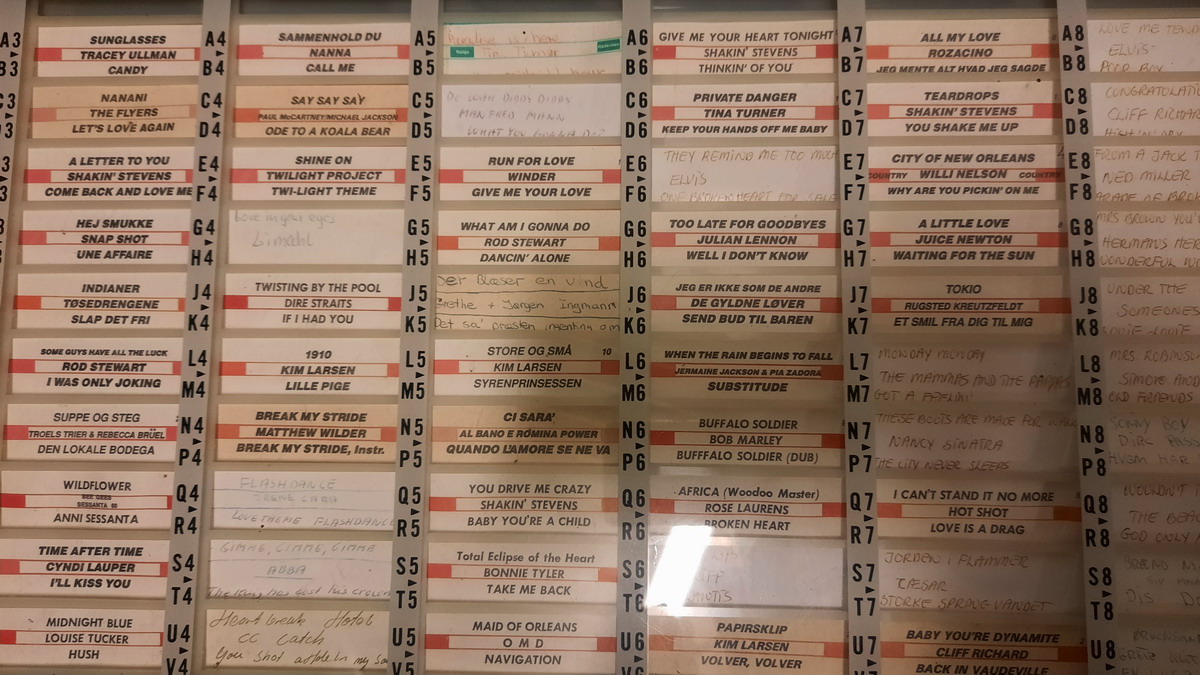 A3
SUNGLASSES
TRACEY ULLMAN
B3
CANDY
C3
NANANI
THE FLYERS
LET'S LOVE AGAIN
A LETTER TO YOU
SHAKIN' STEVENS
COME BACK AND LOVE ME
HEJ SMUKKE
SNAP SHOT
UNE AFFAIRE
INDIANER
TØSEDRENGENE
SLAP DET FRI
SOME GUYS HAVE ALL THE LUCK
ROD STEWART
I WAS ONLY JOKING
SUPPE OG STEG
TROELS TRIER & REBECCA BRÜEL
DEN LOKALE BODEGA
WILDFLOWER
BEE GEES
SESSANTA 60
ANNI SESSANTA
TIME AFTER TIME
CYNDI LAUPER
I'LL KISS YOU
MIDNIGHT BLUE
LOUISE TUCKER
HUSH
A4
SAMMENHOLD DU
NANNA
B4
CALL ME
C4
SAY SAY SAY
PAUL McCARTNEY/MICHAEL JACKSON
D4
ODE TO A KOALA BEAR
E4
SHINE ON
TWILIGHT PROJECT
F4
TWI-LIGHT THEME
G4
Love in your eyes
Limahl
H4
J4
TWISTING BY THE POOL
DIRE STRAITS
K4
IF I HAD YOU
L4
1910
KIM LARSEN
M4
LILLE PIGE
N4
BREAK MY STRIDE
MATTHEW WILDER
P4
BREAK MY STRIDE, Instr.
Q4
FLASHDANCE
IRENE CARA
R4
LOVETHEME FLASHDANCE
S4
GIMME, GIMME, GIMME
ABBA
T4
The King has lost his crown
U4
Heart break Hotel
CC Catch
V4
You shot a hole in my
A5
Tina Turner
B5
C5
DO WAH DIDDY DIDDY
MANFRED MANN
D5
WHAT YOU GONNA DO?
E5
RUN FOR LOVE
WINDER
F5
GIVE ME YOUR LOVE
G5
WHAT AM I GONNA DO
ROD STEWART
H5
DANCIN' ALONE
J5
Der Blæser en vind
Grethe + Jørgen Ingmann
K5
Det sa' præsten ingenting om
L5
STORE OG SMÅ 10
KIM LARSEN
M5
SYRENPRINSESSEN
N5
CI SARA'
AL BANO E ROMINA POWER
P5
QUANDO L'AMORE SE NE VA
Q5
YOU DRIVE ME CRAZY
SHAKIN' STEVENS
R5
BABY YOU'RE A CHILD
S5
Total Eclipse of the Heart
BONNIE TYLER
T5
TAKE ME BACK
U5
MAID OF ORLEANS
O M D
V5
NAVIGATION
A6
GIVE ME YOUR HEART TONIGHT
SHAKIN' STEVENS
B6
THINKIN' OF YOU
C6
PRIVATE DANGER
TINA TURNER
D6
KEEP YOUR HANDS OFF ME BABY
E6
THEY REMIND ME TOO MUCH
ELVIS
F6
ONE BROKEN HEART FOR SALE
G6
TOO LATE FOR GOODBYES
JULIAN LENNON
H6
WELL I DON'T KNOW
J6
JEG ER IKKE SOM DE ANDRE
DE GYLDNE LØVER
K6
SEND BUD TIL BAREN
L6
WHEN THE RAIN BEGINS TO FALL
JERMAINE JACKSON & PIA ZADORA
M6
SUBSTITUDE
N6
BUFFALO SOLDIER
BOB MARLEY
P6
BUFFFALO SOLDIER (DUB)
Q6
AFRICA (Woodoo Master)
ROSE LAURENS
R6
BROKEN HEART
S6
T6
U6
PAPIRSKLIP
KIM LARSEN
VOLVER, VOLVER
A7
ALL MY LOVE
ROZACINO
B7
JEG MENTE ALT HVAD JEG SAGDE
C7
TEARDROPS
SHAKIN' STEVENS
D7
YOU SHAKE ME UP
E7
CITY OF NEW ORLEANS
COUNTRY WILLI NELSON COUNTRY
F7
WHY ARE YOU PICKIN' ON ME
G7
A LITTLE LOVE
JUICE NEWTON
H7
WAITING FOR THE SUN
J7
TOKIO
RUGSTED KREUTZFELDT
K7
ET SMIL FRA DIG TIL MIG
L7
MONDAY MONDAY
THE MAMMAS AND THE PAPPAS
M7
GOT A FEELIN'
N7
THESE BOOTS ARE MADE FOR
NANCY SINATRA
P7
THE CITY NEVER SLEEPS
Q7
I CAN'T STAND IT NO MORE
HOT SHOT
R7
LOVE IS A DRAG
S7
JORDEN I FLAMMER
CÆSAR
T7
STORKE SPRING VANDET
U7
BABY YOU'RE DYNAMITE
CLIFF RICHARD
BACK IN VAUDEVILLE
A8
LOVE ME TEN
ELVIS
B8
POOR BOY
C8
CONGRATULATI
CLIFF RICHAR
D8
E8
FROM A JACK T
NED MILLER
F8
PARADE OF BROK
G8
MRS BROWN YOU'
HERMANS HER
H8
WONDERFUL W
J8
UNDER THE
SOMEONE
K8
L8
MRS. ROBINSO
SIMON AND
M8
OLD FRIENDS
N8
SONNY BOY
DIRC PASS
P8
HVEM HAR
Q8
WOULDN'T
THE BEA
R8
GOD ONLY
S8
T8
U8